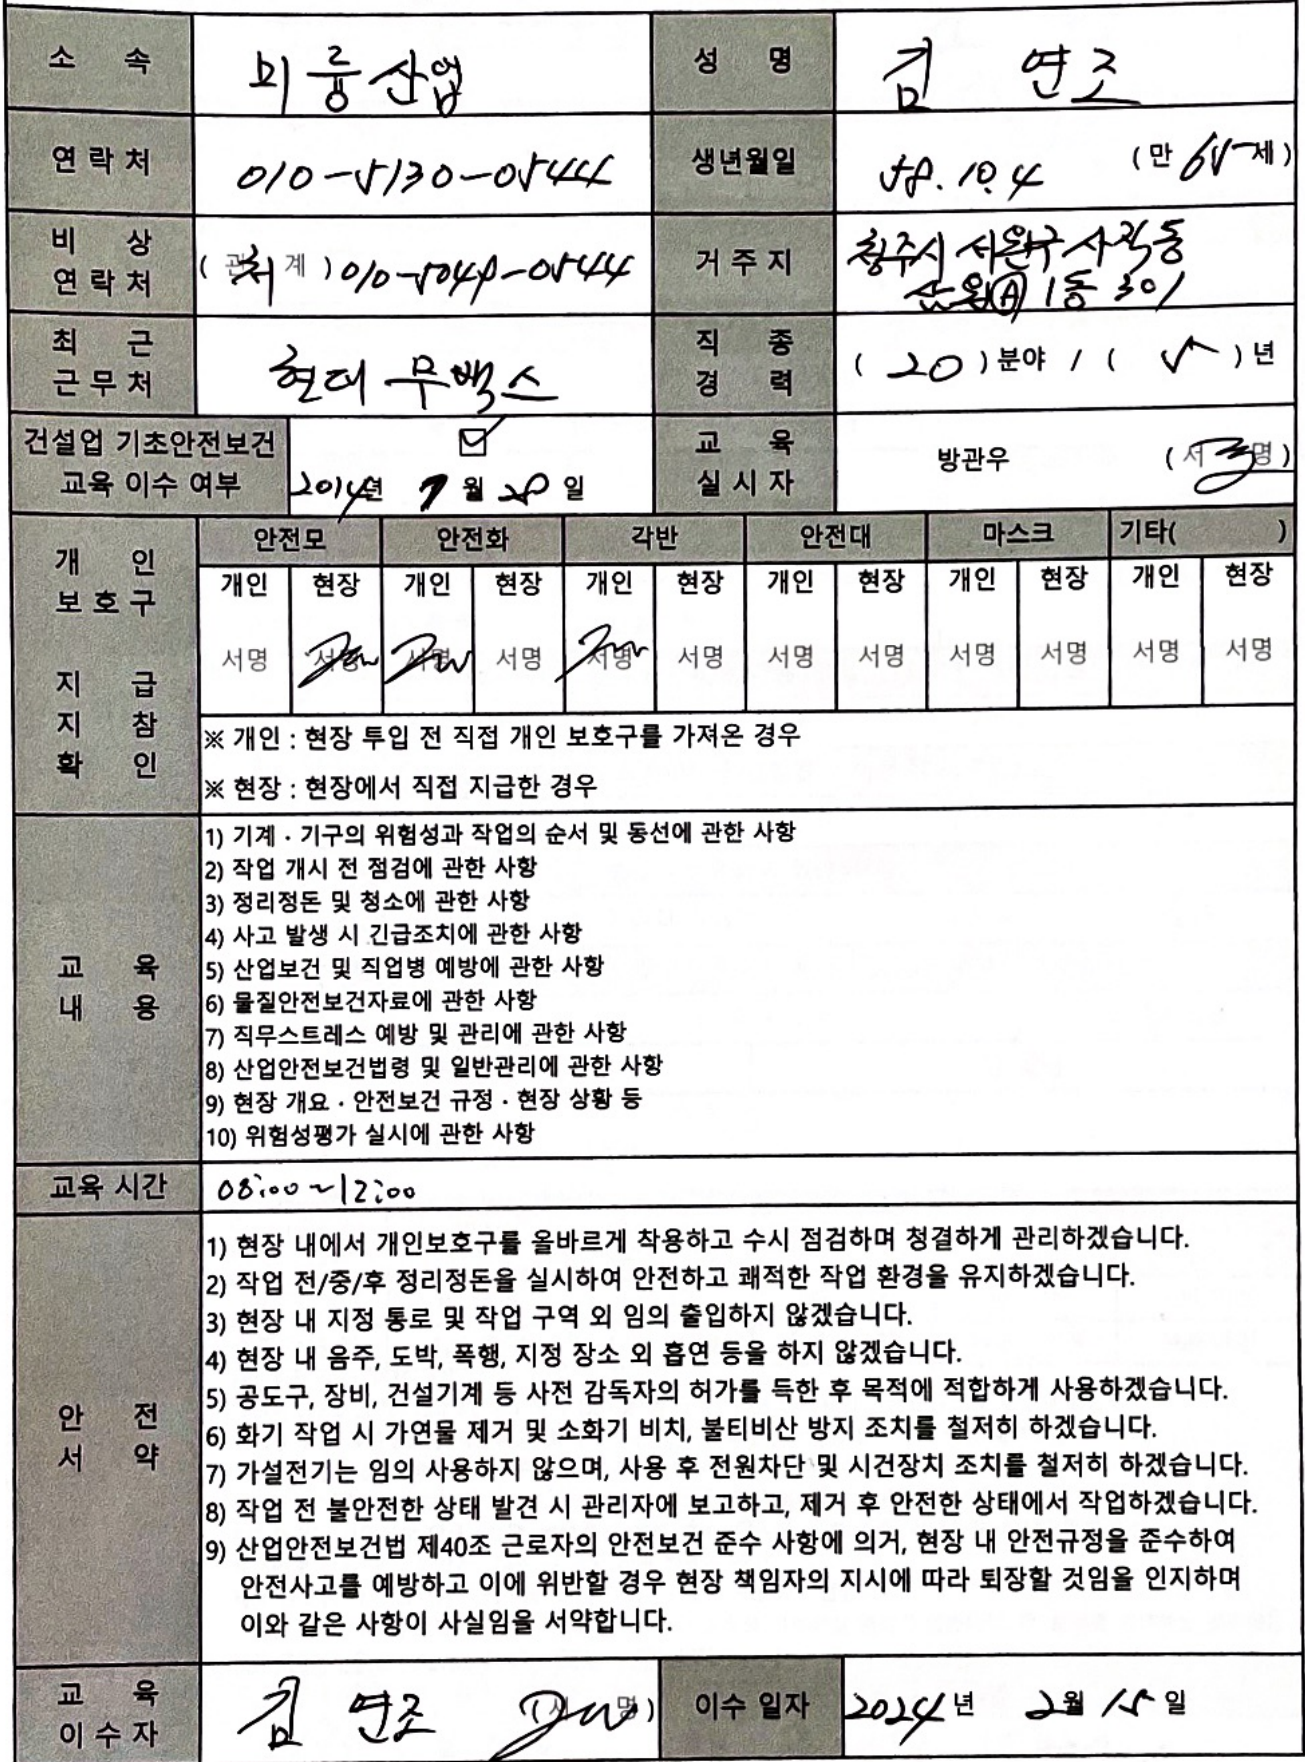 소 속 미륭산업 성 명 김 연조
연락처 010-5130-0544 생년월일 58.10.4 (만 65세)
비 상
연락처 (관계) 처 010-5049-0544 거주지 청주시 서원구 사직동
1동 301
최 근
근무처 현대 무벡스 직 종
경 력 ( 20 ) 분야 / ( 5 ) 년
건설업 기초안전보건
교육 이수 여부 ☑
2014년 7월 28일 교 육
실시자 방관우 (서명)
개 인
보호구
지 급
지 참
확 인
안전모 안전화 각반 안전대 마스크 기타( )
개인 현장 개인 현장 개인 현장 개인 현장 개인 현장 개인 현장
서명 서명 서명 서명 서명 서명 서명 서명 서명 서명 서명 서명
※ 개인 : 현장 투입 전 직접 개인 보호구를 가져온 경우
※ 현장 : 현장에서 직접 지급한 경우
교 육
내 용
1) 기계 · 기구의 위험성과 작업의 순서 및 동선에 관한 사항
2) 작업 개시 전 점검에 관한 사항
3) 정리정돈 및 청소에 관한 사항
4) 사고 발생 시 긴급조치에 관한 사항
5) 산업보건 및 직업병 예방에 관한 사항
6) 물질안전보건자료에 관한 사항
7) 직무스트레스 예방 및 관리에 관한 사항
8) 산업안전보건법령 및 일반관리에 관한 사항
9) 현장 개요 · 안전보건 규정 · 현장 상황 등
10) 위험성평가 실시에 관한 사항
교육 시간 08:00 ~ 12:00
안 전
서 약
1) 현장 내에서 개인보호구를 올바르게 착용하고 수시 점검하며 청결하게 관리하겠습니다.
2) 작업 전/중/후 정리정돈을 실시하여 안전하고 쾌적한 작업 환경을 유지하겠습니다.
3) 현장 내 지정 통로 및 작업 구역 외 임의 출입하지 않겠습니다.
4) 현장 내 음주, 도박, 폭행, 지정 장소 외 흡연 등을 하지 않겠습니다.
5) 공도구, 장비, 건설기계 등 사전 감독자의 허가를 득한 후 목적에 적합하게 사용하겠습니다.
6) 화기 작업 시 가연물 제거 및 소화기 비치, 불티비산 방지 조치를 철저히 하겠습니다.
7) 가설전기는 임의 사용하지 않으며, 사용 후 전원차단 및 시건장치 조치를 철저히 하겠습니다.
8) 작업 전 불안전한 상태 발견 시 관리자에 보고하고, 제거 후 안전한 상태에서 작업하겠습니다.
9) 산업안전보건법 제40조 근로자의 안전보건 준수 사항에 의거, 현장 내 안전규정을 준수하여
안전사고를 예방하고 이에 위반할 경우 현장 책임자의 지시에 따라 퇴장할 것임을 인지하며
이와 같은 사항이 사실임을 서약합니다.
교 육
이수자 김 연조 (서명) 이수 일자 2024년 2월 15일